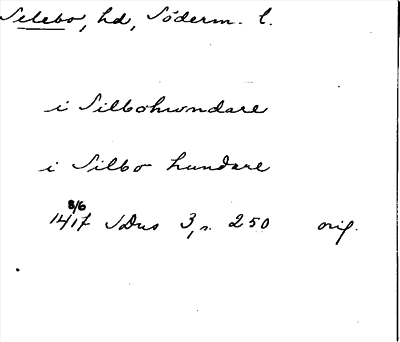 Selebo, hd, Söderm. l.
i Silbohwndare
i Silbo hundare
8/6
1417 SDns 3, s. 250 orig.